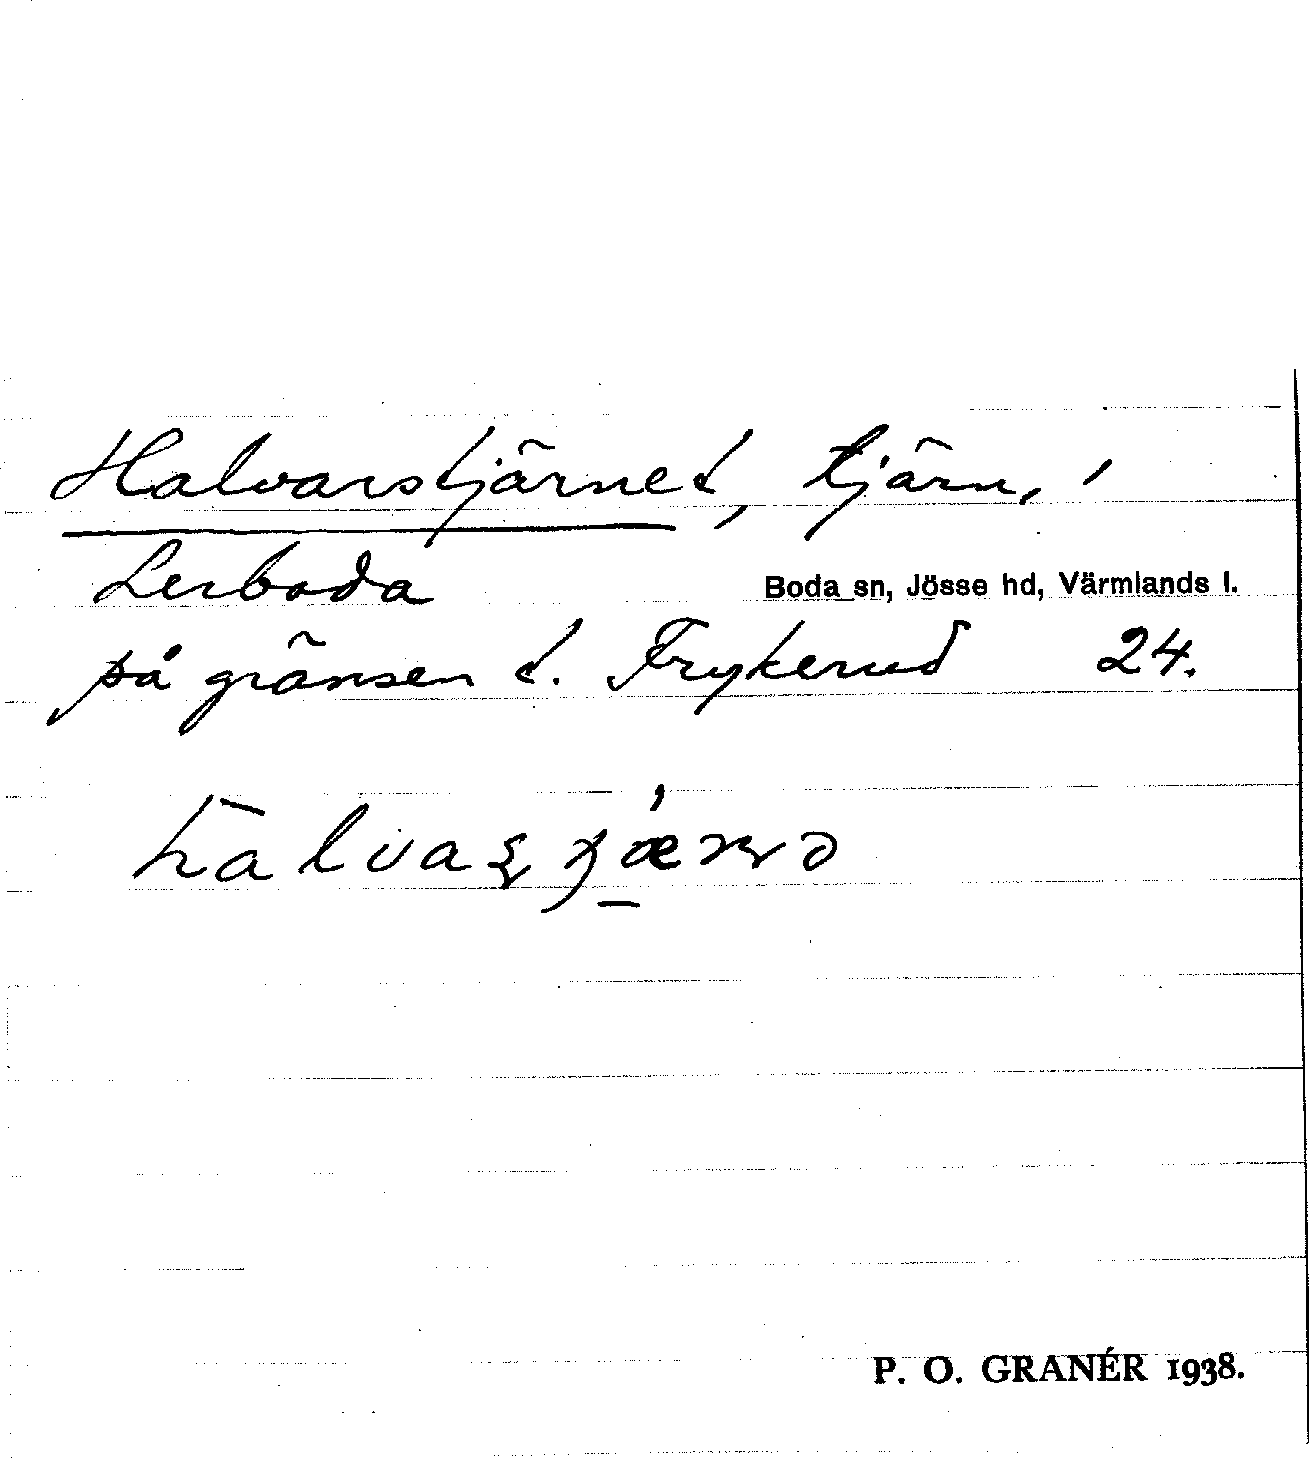 Halvarstjärnet, tjärn, i
Lerboda
Boda sn, Jösse hd, Värmlands l.
på gränsen t. Frykerud 24.
P. O. GRANÉR 1938.